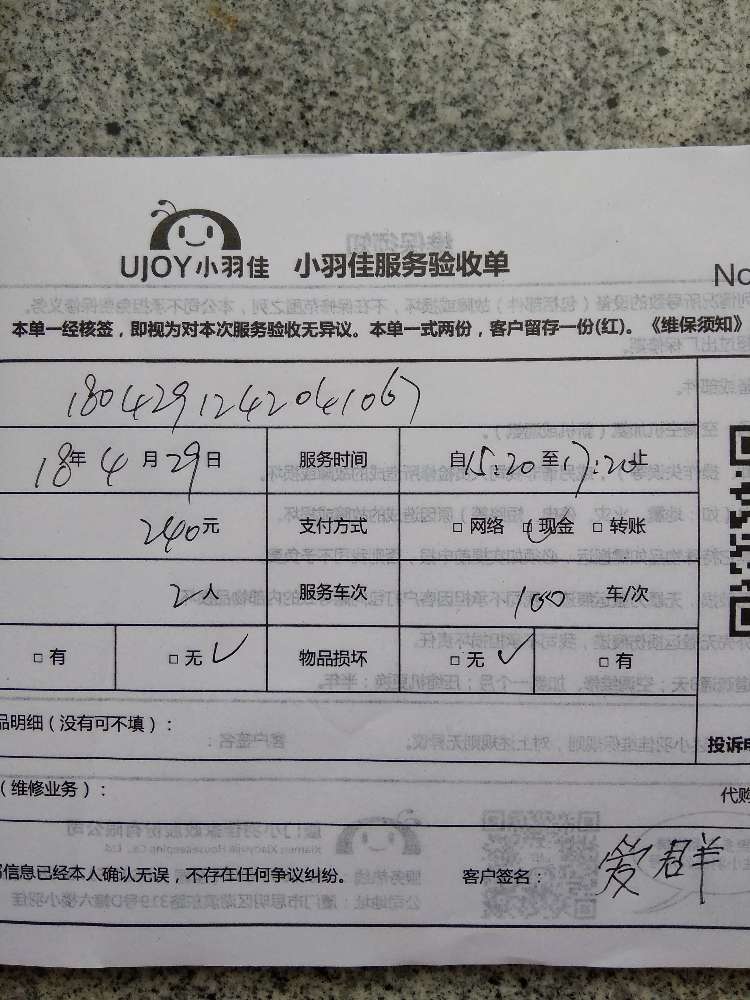 UJOY小羽佳 小羽佳服务验收单
No
本单一经核签，即视为对本次服务验收无异议。本单一式两份，客户留存一份(红)。《维保须知》
1804291242041067
18年4月29日 服务时间 自15:20至17:20止
240元 支付方式 □ 网络 □ 现金 □ 转账
2人 服务车次 100 车/次
□ 有 □ 无 ✓ 物品损坏 □ 无 ✓ □ 有
品明细（没有可不填）：
投诉电
（维修业务）：
代购
信息已经本人确认无误，不存在任何争议纠纷。 客户签名： 爱群